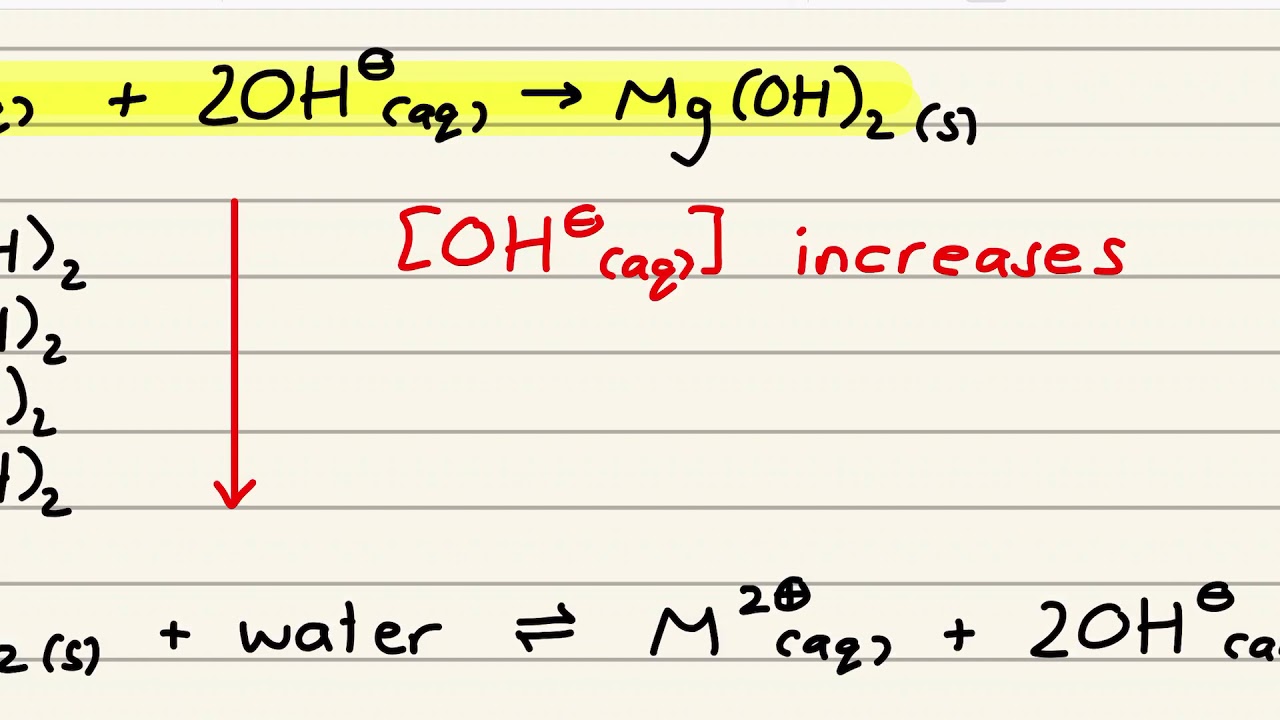 q) + 2OH⊖(aq) → Mg(OH)2(s)
[OH⊖(aq)] increases
H)2
H)2
)2
H)2
2(s) + water ⇌ M2⊕(aq) + 2OH⊖(aq